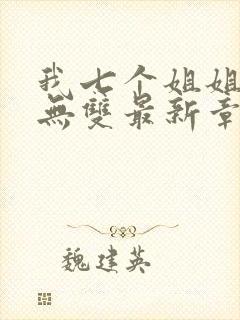 我七个姐姐
無雙最新章
魏建英